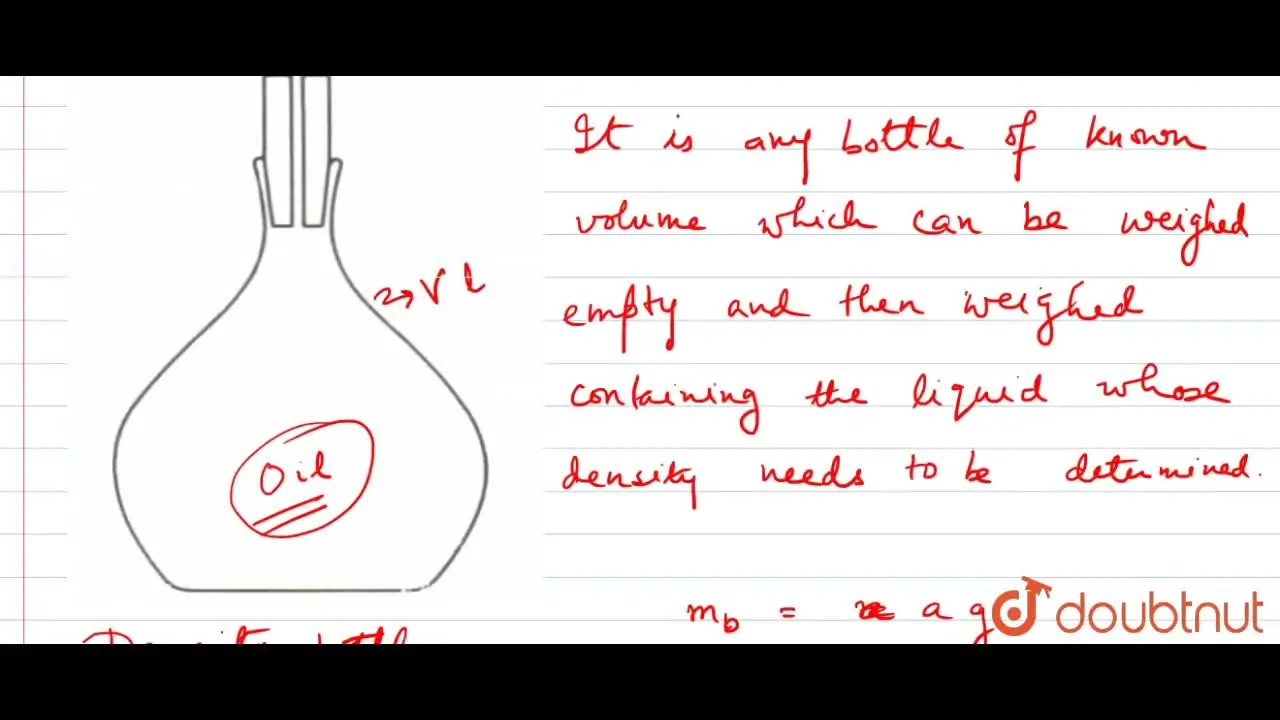 It is any bottle of known
volume which can be weighed
→ V L
empty and then weighed
containing the liquid whose
Oil
density needs to be determined.
m_b = a g
doubtnut
Density bottle